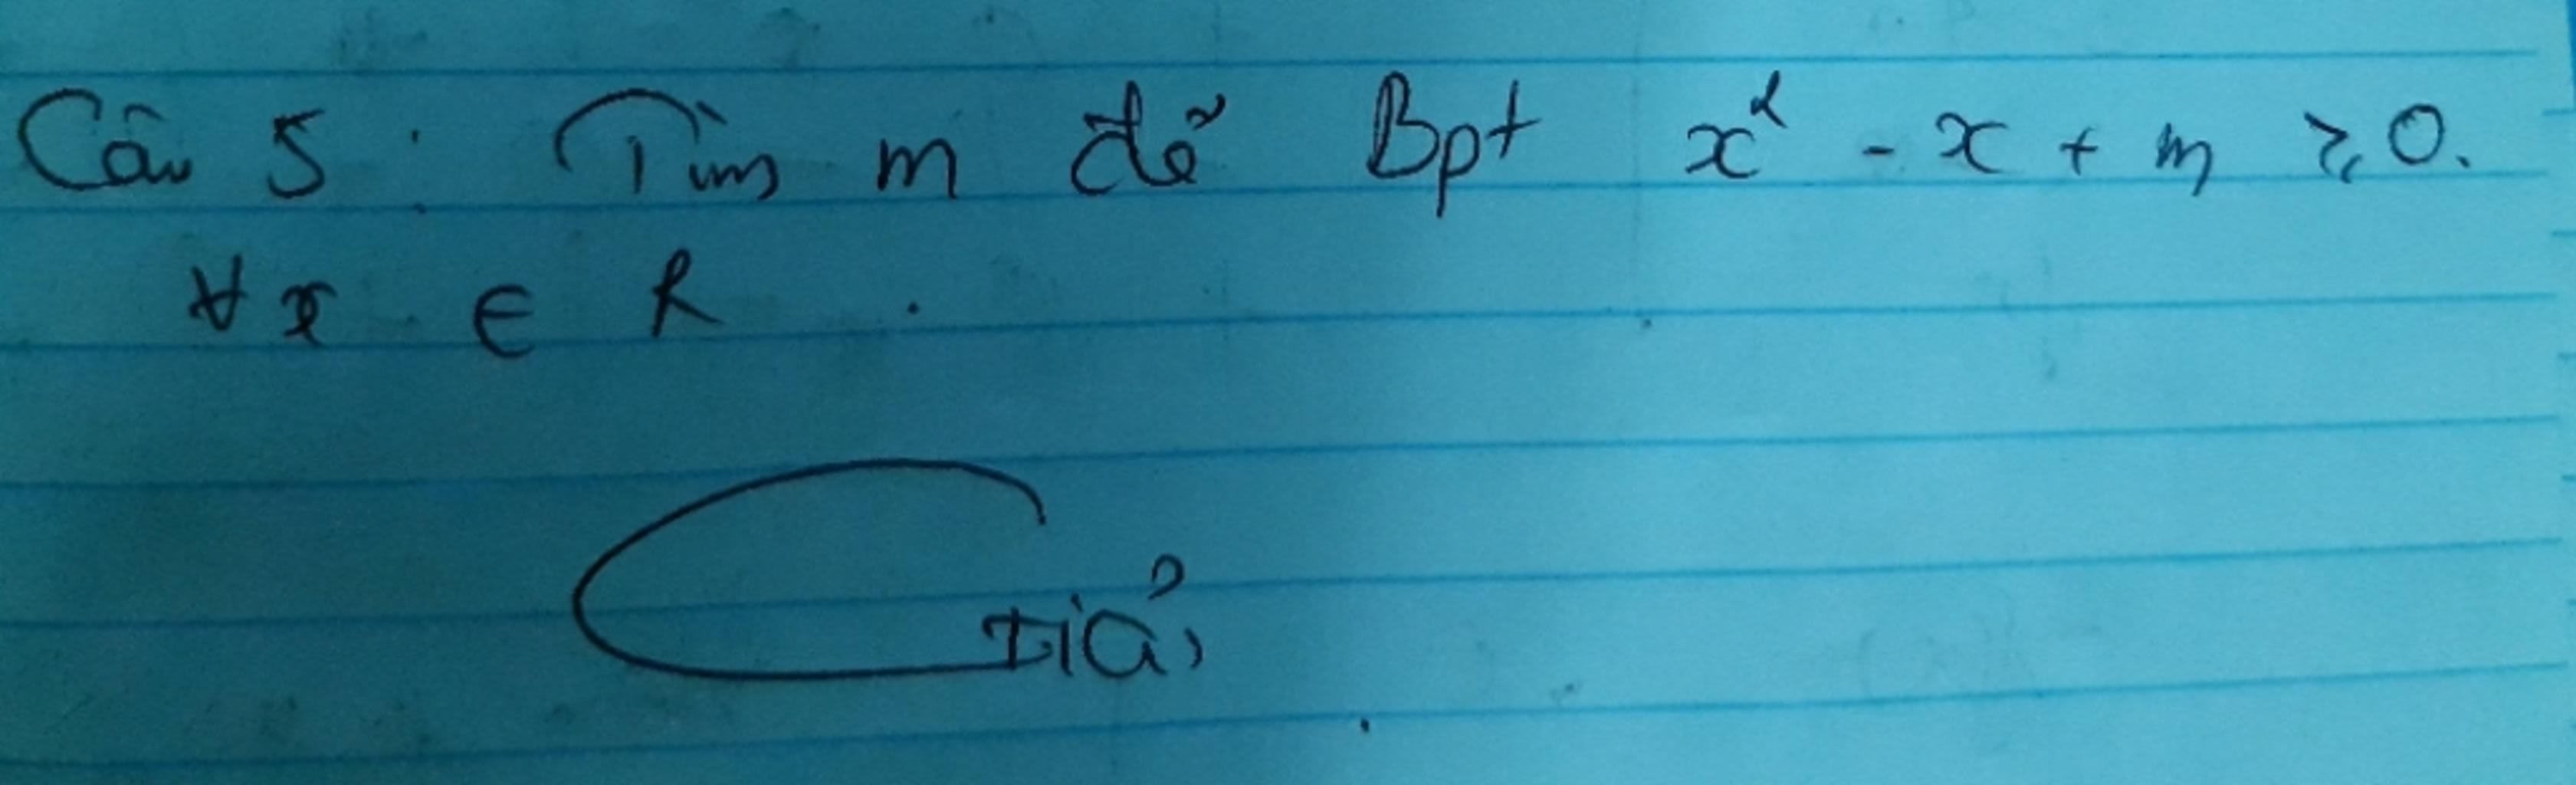 Câu 5 : Tìm m để Bpt x² - x + m ≥ 0.
∀x ∈ R .
Giải